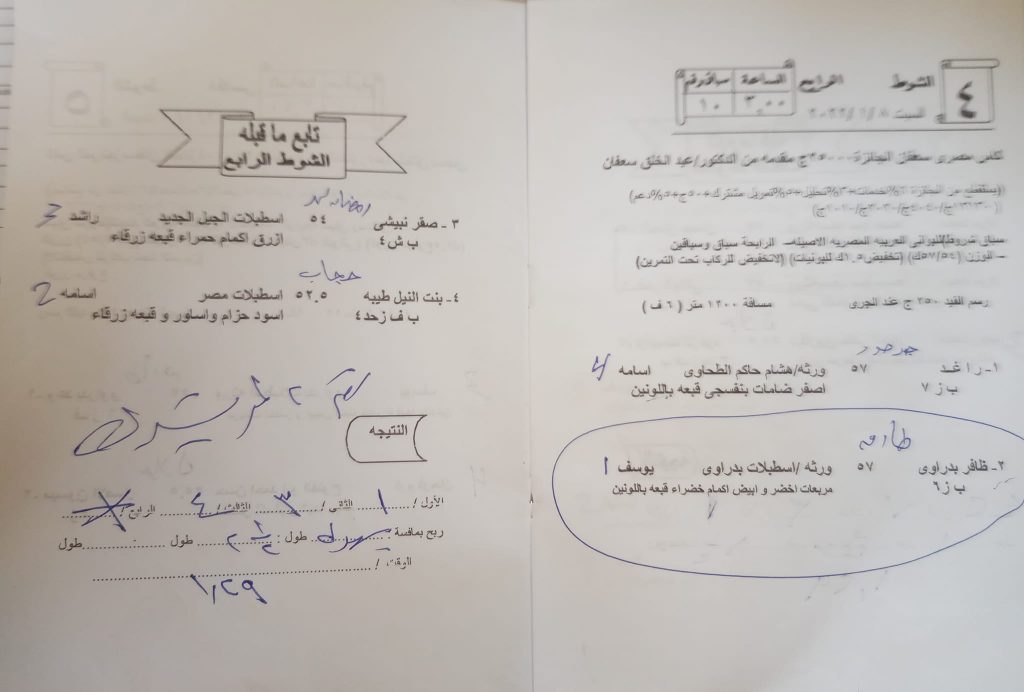 ٤
الشوط الرابع
الساعة سباق رقم
٣,٠٠ ١٠
السبت ٢٠٢٢/١/٨
كأس مصرى سعفان الجائزة ٣٥٠٠٠ج مقدمه من الدكتور/عبد الخلق سعفان
سباق شروط للبوانى العربيه المصريه الاصيله- الرابحة سباق وسباقين
- الوزن (٥٧/٥٤ك) (تخفيض ١,٥ك للبونيات) (لاتخفيض للركاب تحت التمرين)
رسم القيد ٢٥٠ ج عند الجرى مسافة ١٢٠٠ متر (٦ ف)
١- راغد ٥٧ ورثه/هشام حاكم الطحاوى اسامه 4
ب ز ٧ اصفر ضامات بنفسجى قبعه باللونين
طارق
٢- ظافر بدراوى ٥٧ ورثه /اسطبلات بدراوى يوسف 1
ب ز٦ مربعات اخضر و ابيض اكمام خضراء قبعه باللونين
تابع ما قبله
الشوط الرابع
رمضان
٣- صقر نبيشى ٥٤ اسطبلات الجيل الجديد راشد 3
ب ش٤ ازرق اكمام حمراء قبعه زرقاء
حجاب
٤- بنت النيل طيبه ٥٢.٥ اسطبلات مصر اسامه 2
ب ف زحد٤ اسود حزام واساور و قبعه زرقاء
النتيجه
الأول / ١ الثانى / ٣ الثالث / ٤ الرابع /
ربح بمسافة : بسهولة طول : ٢ ١/٢ طول : طول
الوقت /
١,٢٩
٨